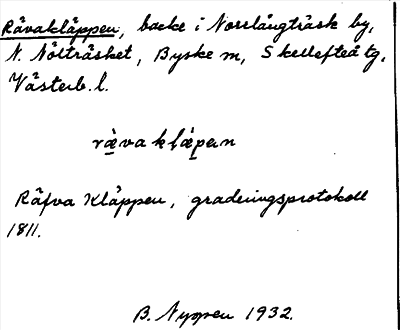 Rävakläppen, backe i Norrlångträsk by,
N. Nölträsket, Byske m, Skellefteå tg,
Västerb. l.
rävakḷäpen
Räfva Kläppen, graderingsprotokoll
1811.
B. Nygren 1932.